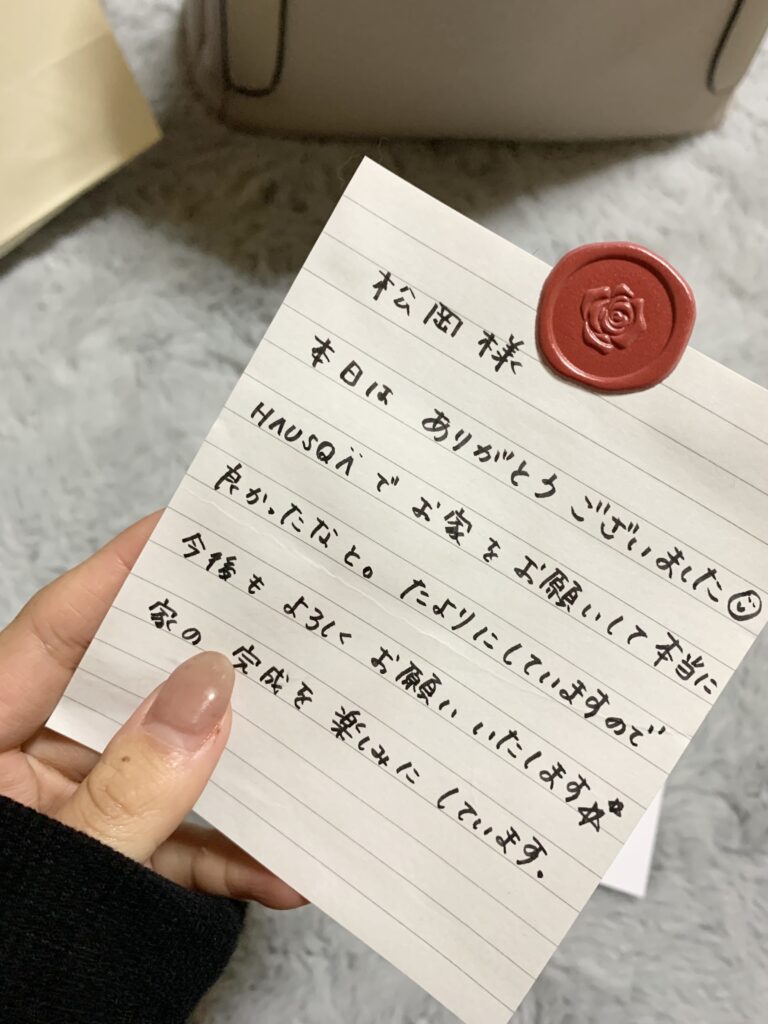 松岡様
本日は ありがとう ございました☺
HAUSQÄで お家を お願いして 本当に
良かったなと。たよりにしていますので
今後も よろしく お願い いたします
家の 完成を 楽しみに しています.